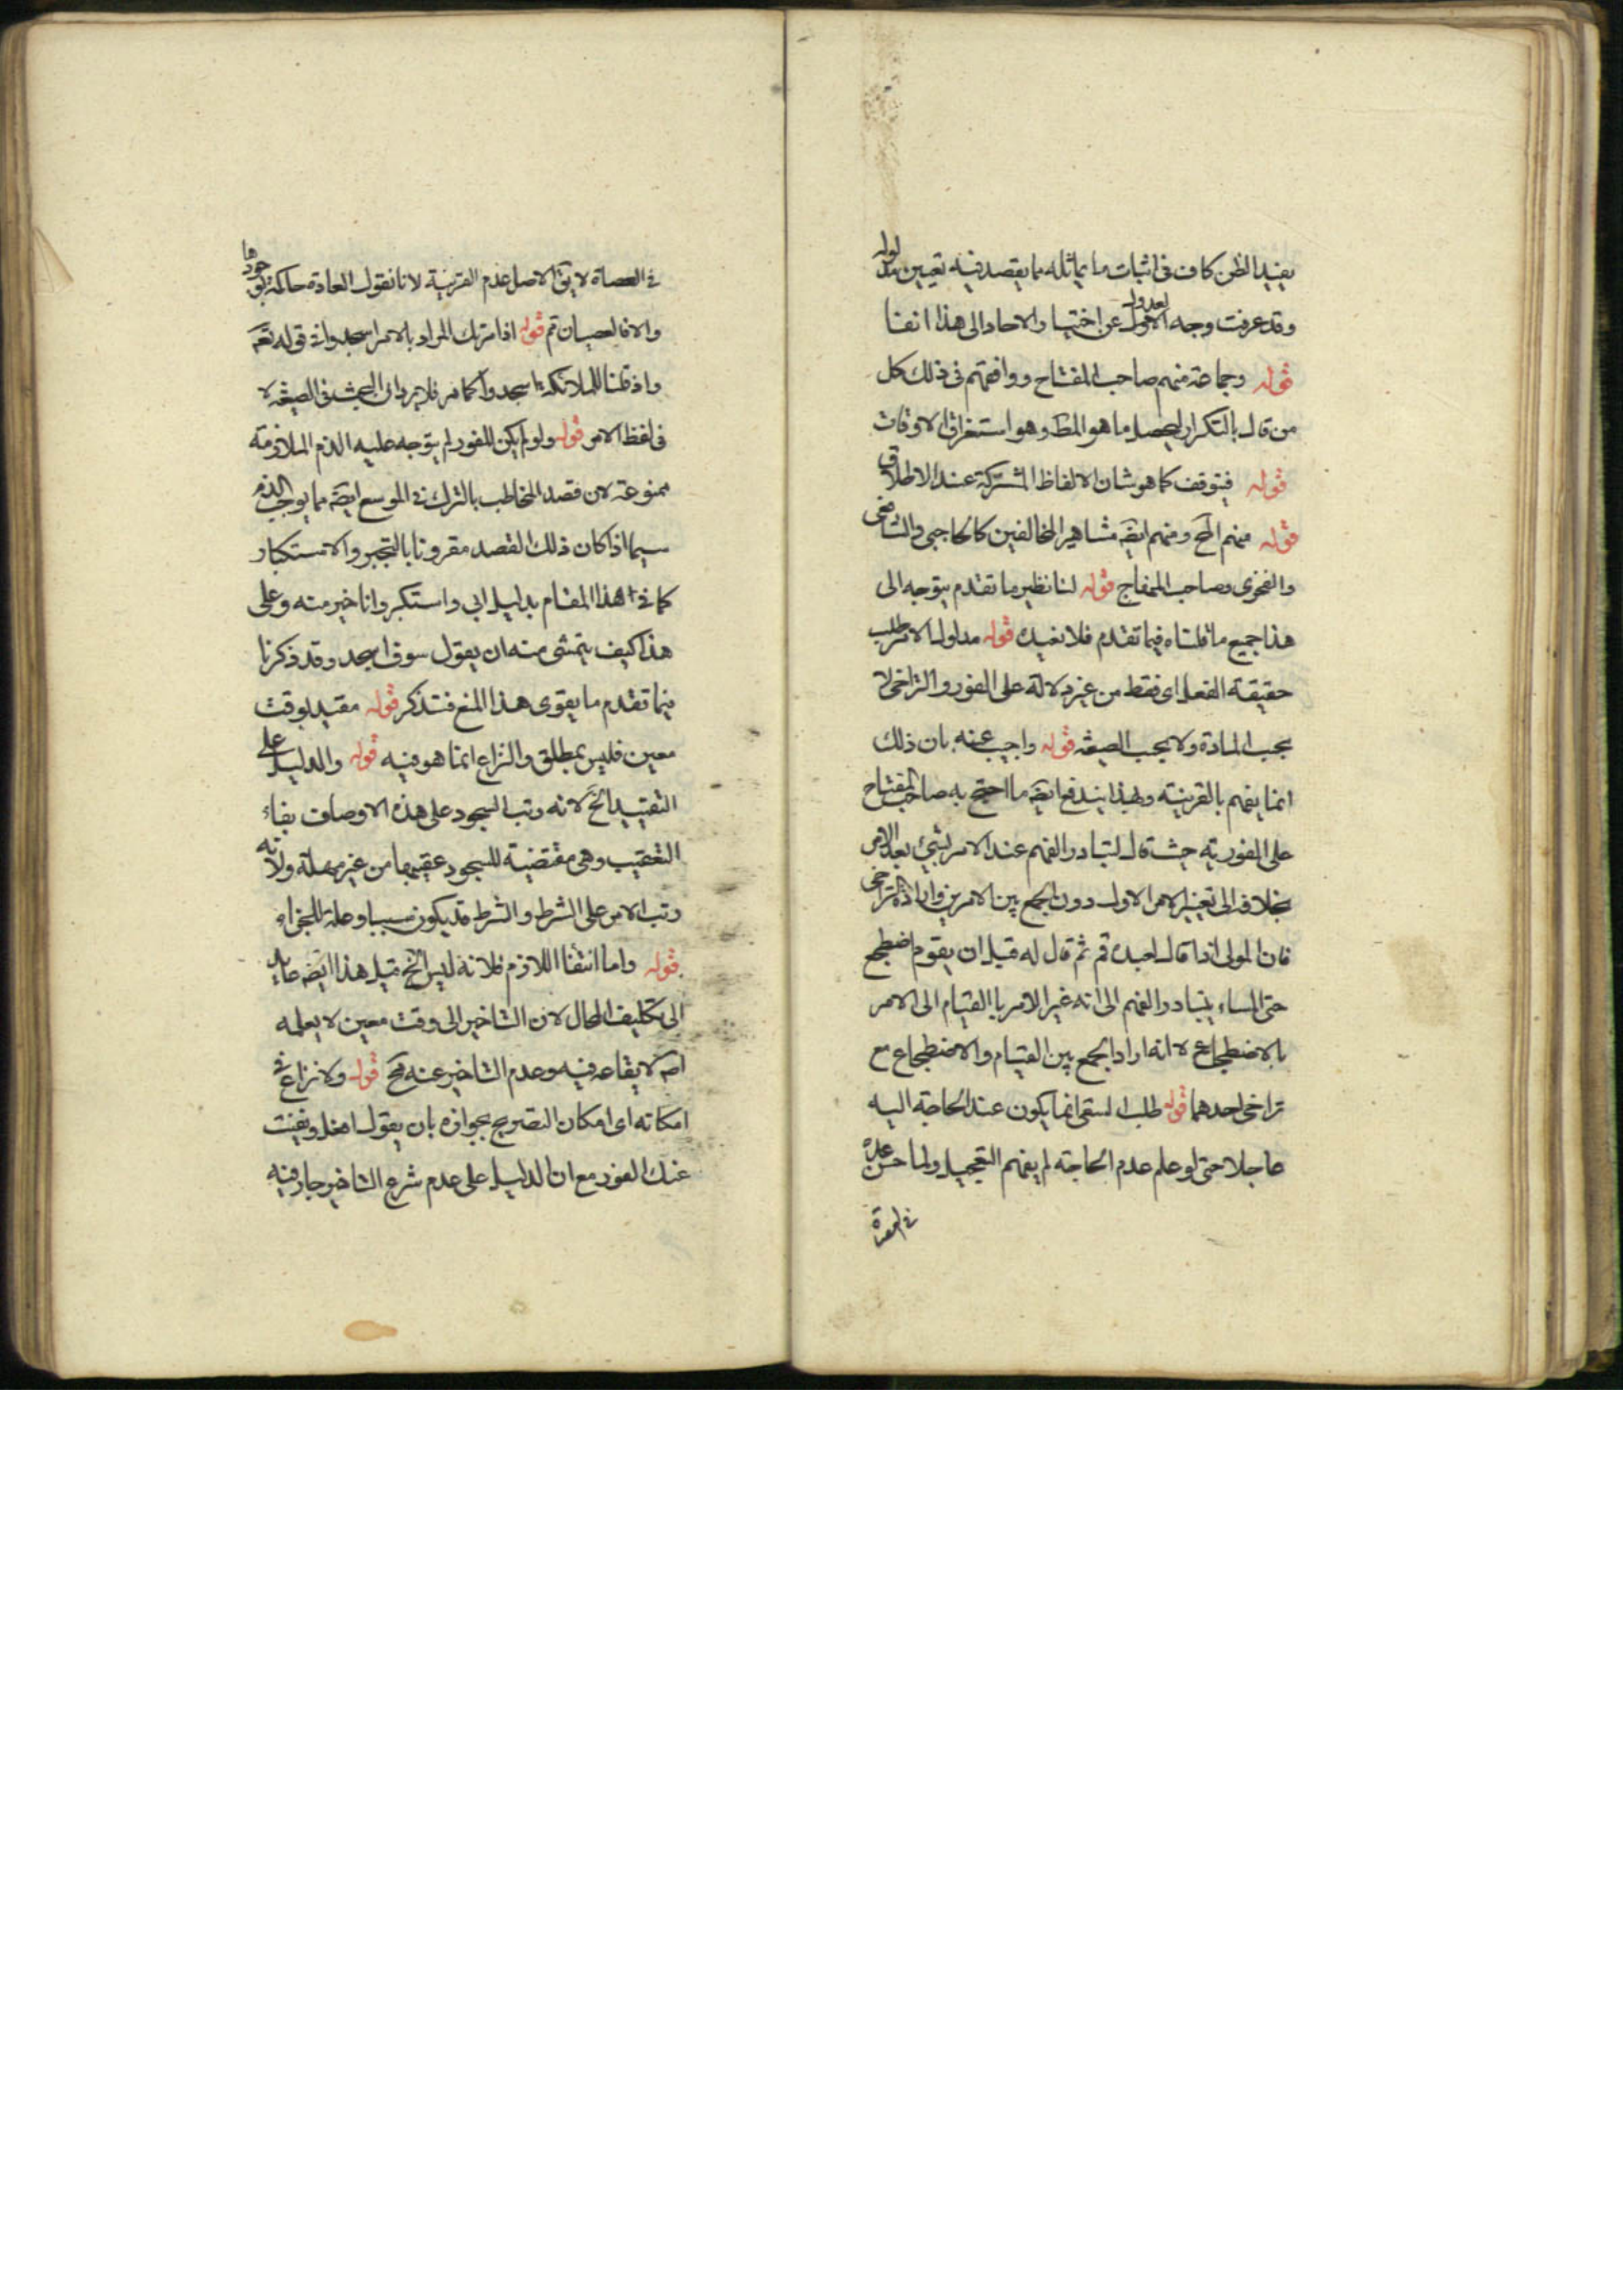 يفيد الظن كاف فى اثبات ما يماثله مما يقصد فيه تعيين مدلوله
وقد عرفت وجه العدول عن اختيار الاحاد الى هذا انفا
قوله وجماعة منهم صاحب المفتاح ووافقهم فى ذلك كل
من قال بالتكرار ليحصل ما هو المط وهو استغراق الاوقات
قوله فيتوقف كما هو شان الالفاظ المشتركة عند الاطلاق
قوله منهم المح ومنهم ايضه مشاهير المخالفين كالحاجبى والشافعى
والفخرى وصاحب المفاج قوله لنا نظير ما تقدم يتوجه الى
هذا جميع ما قلناه فيما تقدم فلا نعيده قوله مدلول الامر طلب
حقيقة الفعل اى فقط من غير دلالة على الفور والتراخى لا
بحسب المادة ولا بحسب الصيغه قوله واجيب عنه بان ذلك
انما يفهم بالقرينة وبهذا يندفع ايضه ما احتج به صاحب المفتاح
على الفورية حيث قال لتبادر الفهم عند الامر بشيئ بعد الامر
بخلافه الى تغيير الامر الاول دون الجمع بين الامرين وارادة التراخى
فان المولى اذا قال لعبده قم ثم قال له قبل ان يقوم اضطجع
حتى المساء يتبادر الفهم الى انه غير الامر باالقيام الى الامر
بالاضطجاع لا انه اراد الجمع بين القيام والاضطجاع مع
تراخى احدهما قوله طلب السقى انما يكون عند الحاجة اليه
عاجلا حتى لو علم عدم الحاجة لم يفهم التعجيل ولما حسن عده
فى العصاة لا يق الاصل عدم القرينة لانا نقول العادة حاكمة بوجودها
والا فالعصيان ثم قوله اذا مرتك المراد بالامر اسجدوا فى قوله تعه
واذ قلنا للملائكة اسجدوا كما مر فلا يرد ان البحث فى الصيغه لا
فى لفظ الامر قوله ولو لم يكن للفور لم يتوجه عليه الذم الملازمة
ممنوعة لان قصد المخاطب بالترك فى الموسع ايضه مما يوجب الذم
سيما اذا كان ذلك القصد مقرونا بالتجبر والاستكبار
كما فى هذا المقام بدليل ابى واستكبر وانا خير منه وعلى
هذا كيف يتمشى منه ان يقول سوف اسجد وقد ذكرنا
فيما تقدم ما يقوى هذا المنع فتذكر قوله مقيد بوقت
معين فليس بمطلق والنزاع انما هو فيه قوله والدليل على
التقييد الخ لانه رتب السجود على هذه الاوصاف بفاء
التعقيب وهى مقتضية للسجود عقيبها من غير مهلة ولانه
رتب الامر على الشرط والشرط قد يكون سببا وعلة للجزاء
قوله واما انتفاا اللازم فلانه ليس الخ قيل هذا ايضه عايد
الى تكليف المحال لان التاخير الى وقت معين لا يعلمه
لايقاعه فيه وعدم التاخير عنه مح قوله ولا نزاع فى
امكانه اى امكان التصريح بجوازه بان يقول افعل ونفيت
عنك الفور مع ان الدليل على عدم شرع التاخير جار فيه